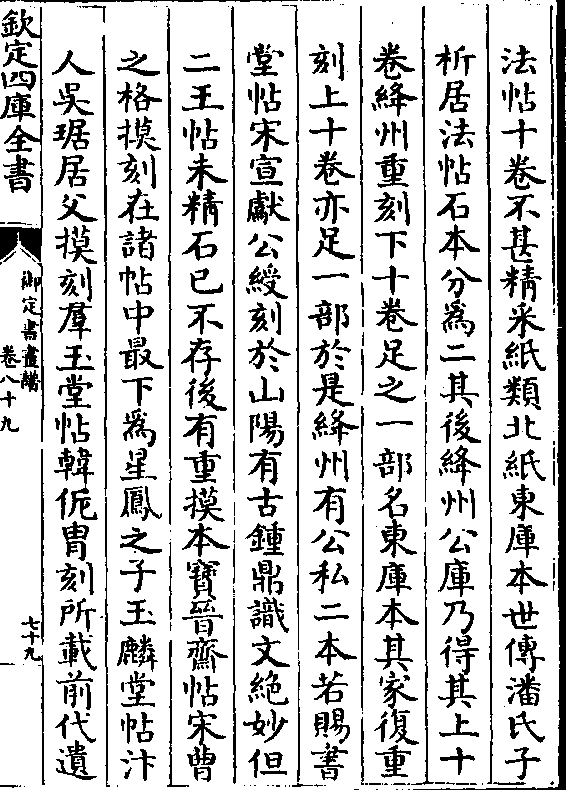 法帖十卷不甚精采紙類北紙東庫本世傳潘氏子
析居法帖石本分為二其後絳州公庫乃得其上十
卷絳州重刻下十卷足之一部名東庫本其家復重
刻上十卷亦足一部於是絳州有公私二本若賜書
堂帖宋宣獻公綬刻於山陽有古鍾鼎識文絶妙但
二王帖未精石已不存後有重摸本寶晉齋帖宋曹
之格摸刻在諸帖中最下為星鳳之子玉麟堂帖汴
人吳琚居父摸刻羣玉堂帖韓侂胄刻所載前代遺
欽定四庫全書
御定書畫譜
卷八十九
七十九